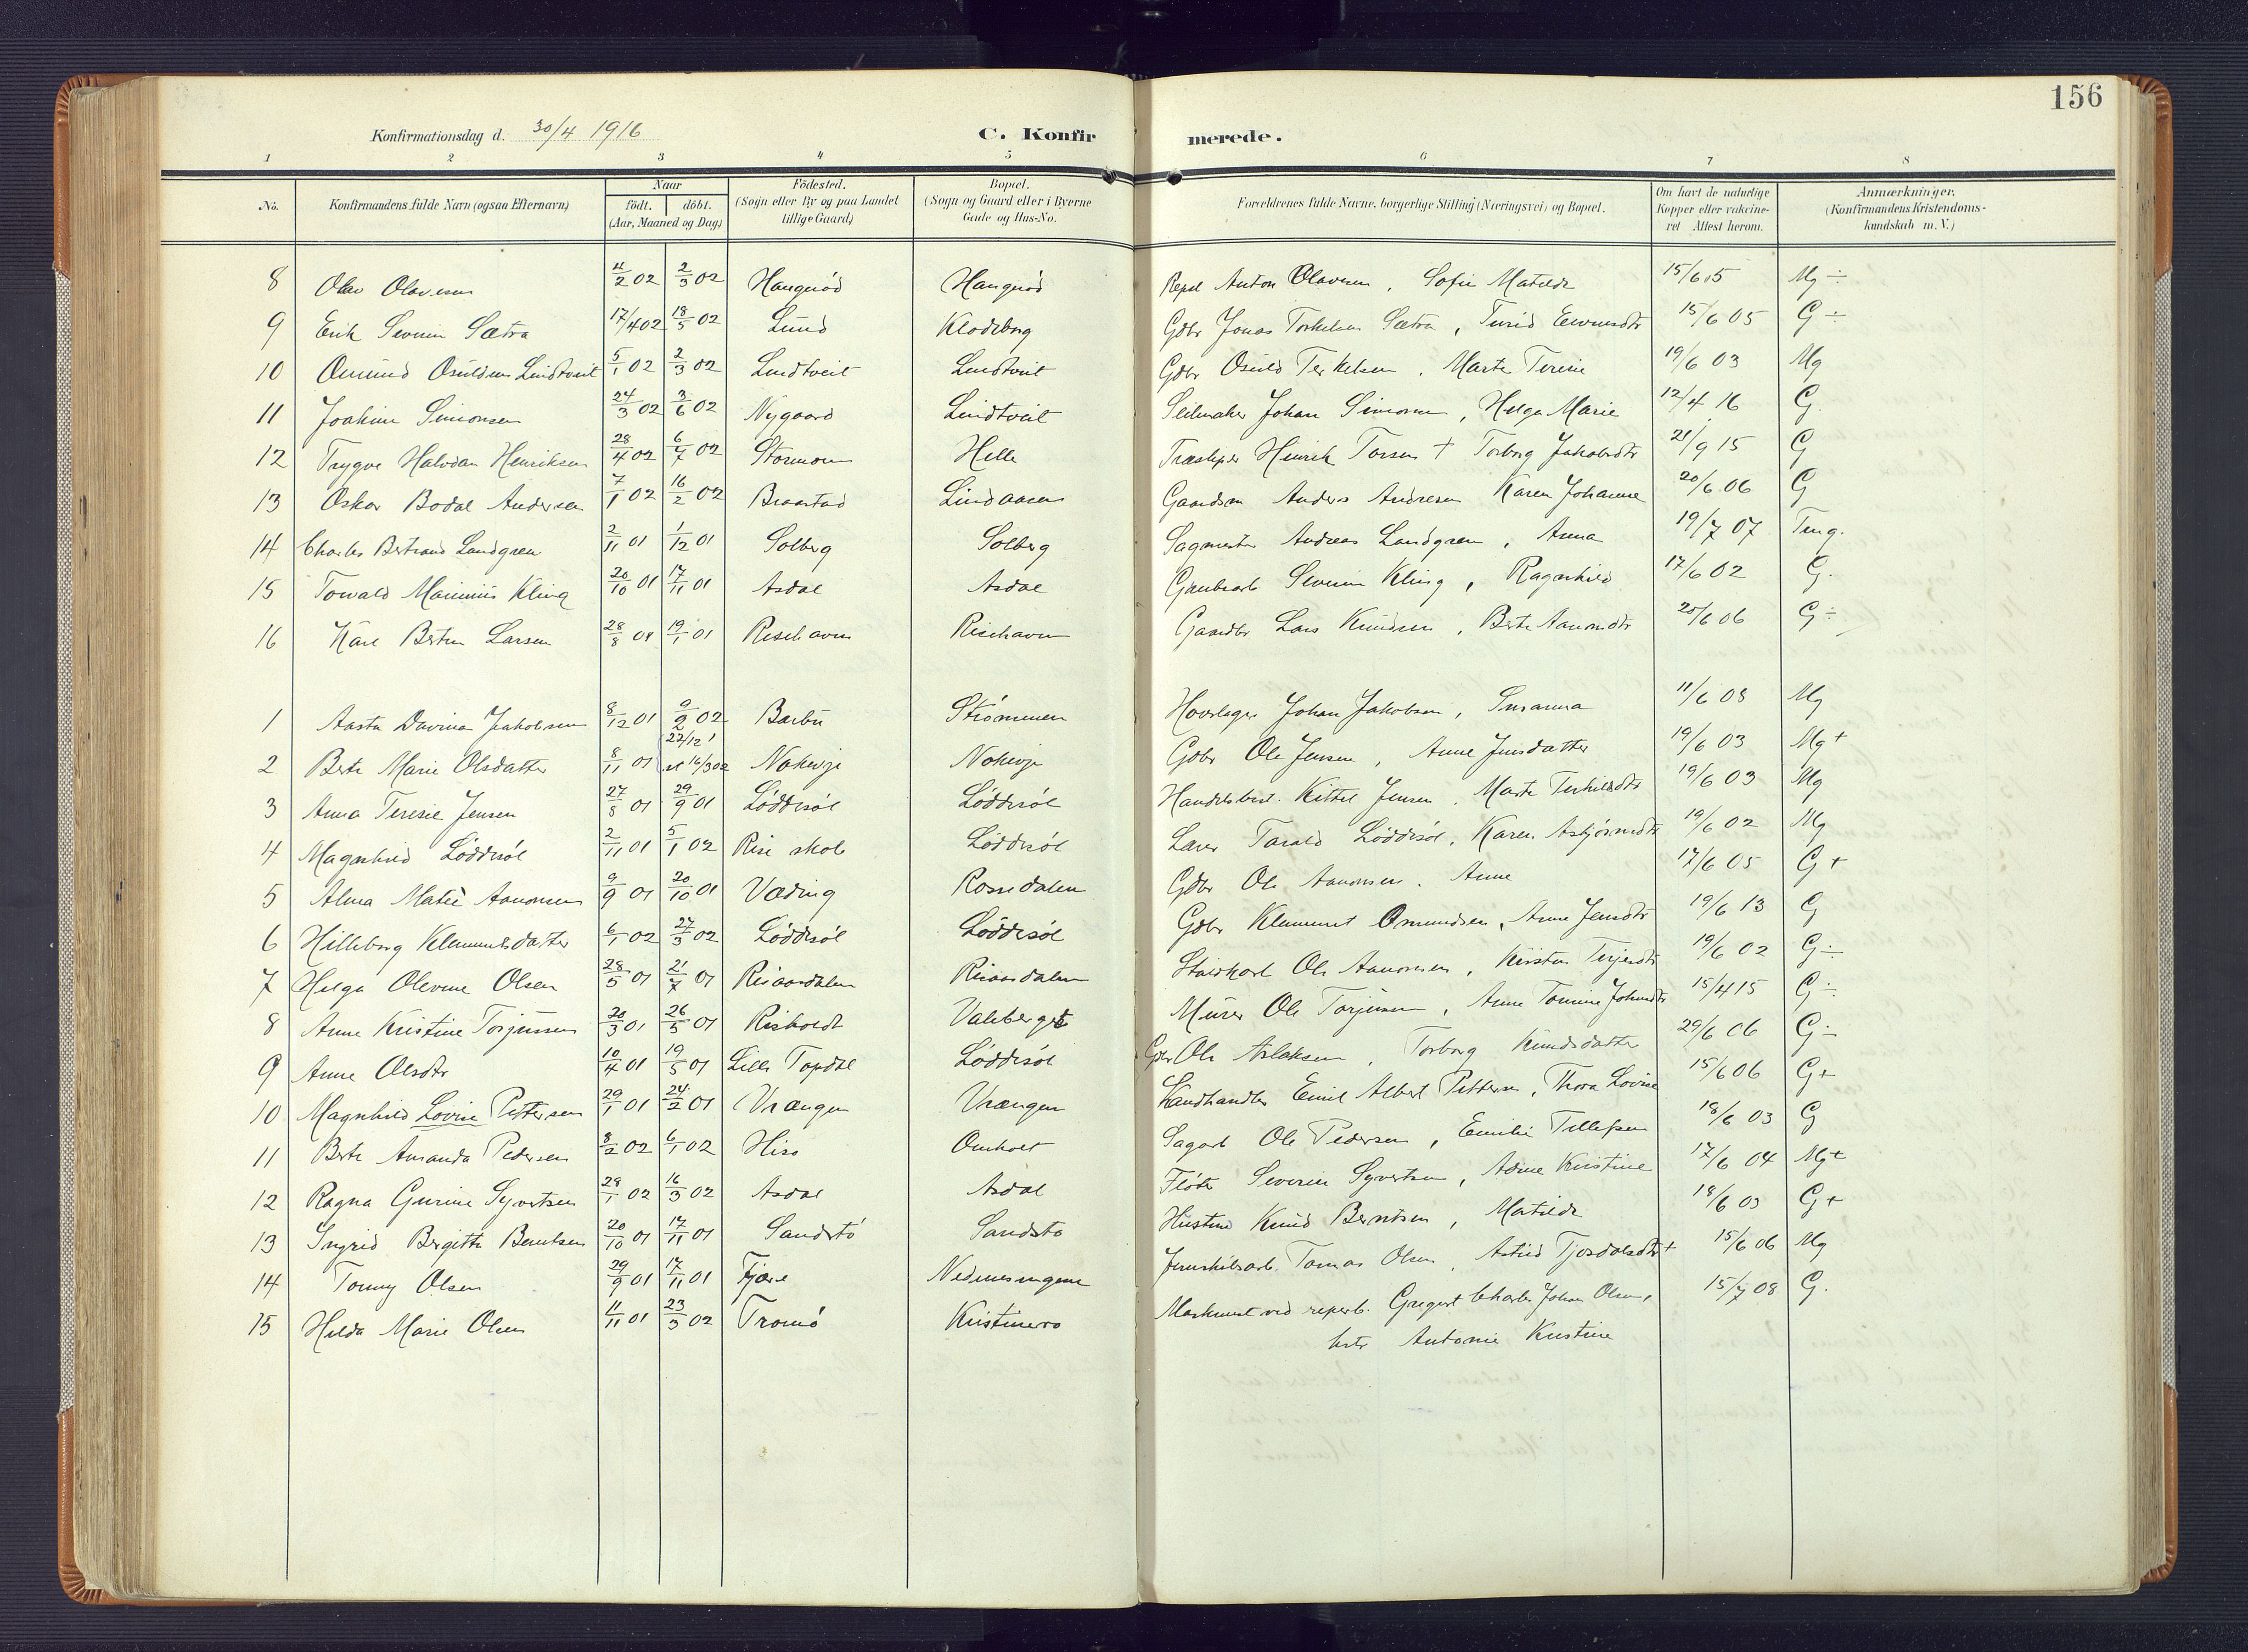 156
Konfirmationsdag d. 30/4 1916
C. Konfirmerede.
1 2 3 4 5 6 7 8
No. Konfirmandens fulde Navn (ogsaa Efternavn) Naar födt. döbt. (Aar, Maaned og Dag) Födested. (Sogn eller By og paa Landet tillige Gaard) Bopæl. (Sogn og Gaard eller i Byerne Gade og Hus-No. Forældrenes fulde Navne, borgerlige Stilling (Næringsvei) og Bopæl. Om havt de naturlige Kopper eller vakcineret Attest herom. Anmærkninger. (Konfirmandens Kristendomskundskab m. V.)
8 Olav Olavesen 4/2 02 2/3 02 Haugnöd Haugnöd Anton Olavesen, Sofie Matilde 15/6 15 Mg ÷
9 Erik Severin Sætra 17/4 02 18/5 02 Lund Klodeborg Gdbr Jonas Torkelsen Sætra, Turid 15/6 05 G ÷
10 Omund Osuldsen Lindtveit 5/1 02 2/3 02 Lindtveit Lindtveit Gdbr Osuld Terkelsen, Marte Terese 19/6 03 Mg
11 Joakim Simonsen 24/3 02 3/6 02 Nygaard Lindtveit Seilmaker Johan Simonsen, Helga Marie 12/4 16 G
12 Trygve Halvdan Henriksen 28/4 02 6/7 02 Helle Henrik Torsen + Torborg Jakobsdtr 21/9 15 G
13 Oskar Bodal Andersen 7/1 02 16/2 02 Braastad Lindaasen Gaardsm Anders Andresen Karen Johanne 20/6 06 G
14 Charles Bertrand Landgren 2/11 01 1/12 01 Solberg Solberg Sagmester Andreas Landgren, Anna 19/7 07 Tmg.
15 Torvald Marinius Kling 20/10 01 17/11 01 Asdal Asdal Severin Kling, Ragnhild 17/6 02 G.
16 Kåre Larsen 19/1 01 Risehaven Risehaven Gaardbr Lars Knudsen, Berte Aanonsdtr 20/6 06 G ÷
1 Aasta Davina Jakobsen 8/12 01 9/2 02 Barbu Strömmen Hovslager Johan Jakobsen, Susanna 11/6 08 Mg
2 Berte Marie Olsdatter 8/11 01 22/12 1 st 16/3 02 Nokevje Nokevje Gdbr Ole Jensen, Anne Jensdatter 19/6 03 Mg +
3 Anna Teresie Jensen 27/8 01 29/9 01 Löddesöl Löddesöl Handelsbest. Kittel Jensen, Marte Terkilsdtr 19/6 03 Mg
4 Magnhild Löddesöl 2/11 01 5/1 02 Rise skole Löddesöl Lærer Tarald Löddesöl, Karen Asbjörnsdtr 19/6 02 Mg
5 Alma Matie Aanonsen 9/9 01 20/10 01 Væding Rossedalen Gdbr Ole Aanonsen. Anne 17/6 05 G +
6 Hilleborg Klemmetsdatter 6/1 02 27/3 02 Löddesöl Löddesöl Gdbr Klemmet Omundsen, Anne Jensdtr 19/6 13 G
7 Helga Olevine Olsen 28/5 01 21/7 01 Risaasdalen Risaasdalen Ole Aanonsen, Kirsten Terjesdtr 19/6 02 G ÷
8 Anne Kristine Torjussen 20/3 01 26/5 01 Risholdt Valeberget Murer Ole Torjussen, Anne Tomine 15/4 15 G ÷
9 Anne Olsdtr 10/4 01 19/5 01 Lille Topdal Löddesöl Gdbr Ole Aslaksen, Torborg Knudsdatter 29/6 06 G ÷
10 Magnhild Lovise Pettersen 29/1 01 24/2 01 Vrængen Vrængen Landhandler Emil Albert Pettersen, Thora Lovise 15/6 06 G +
11 Berte Amanda Pedersen 6/1 02 Hisö Omholt Sagarb Ole Pedersen, Emilie Tellefsen 18/6 03 G
12 Ragna Gurine Syvertsen 28/1 02 16/3 02 Asdal Asdal Fløter Severin Syvertsen, Anne Kristine 17/6 04 Mg +
13 Ingrid Bergitte Berntsen 20/10 01 17/11 01 Sandstö Sandstö Knud Berntsen, Matilde 18/6 03 G +
14 Tonny Olsen 29/9 01 17/11 01 Fjære Tomas Olsen, Astrid + 15/6 06 Mg
15 Hilda Marie Olsen 11/11 01 23/3 02 Tromö Kristinero Maskinist ved reperb. Gregert Charles Johan Olsen, 15/7 08 G.
Antonie Kristine